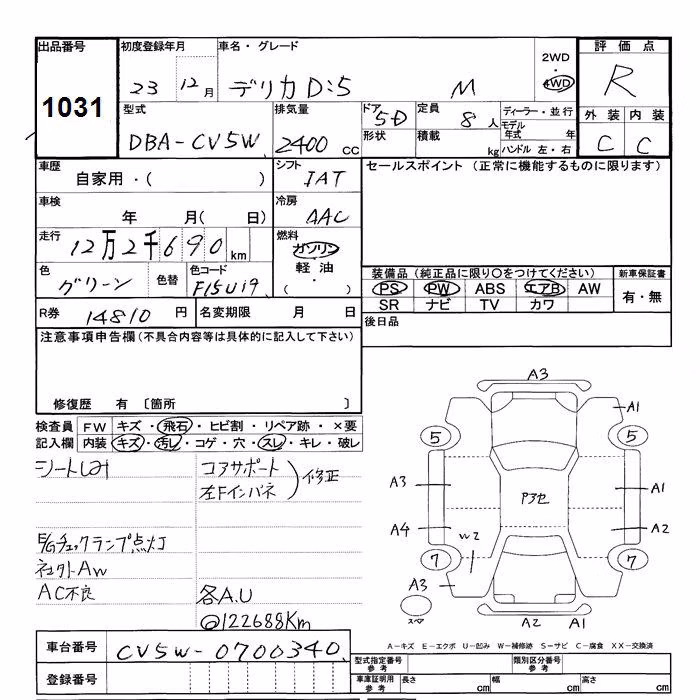 出品番号 1031
初度登録年月 23 12月
車名・グレード デリカD:5 M
2WD
4WD
評価点 R
型式 DBA-CV5W
排気量 2400 cc
ドア 5D
形状
定員 8人
積載 kg
ディーラー・並行
モデル年式 年
ハンドル 左・右
外装 内装
C C
車歴 自家用・( )
シフト IAT
セールスポイント (正常に機能するものに限ります)
車検 年 月( 日)
冷房 AAC
走行 12万2千690km
燃料 ガソリン
軽油
・( )
色 グリーン 色替
色コード F15U19
装備品 (純正品に限り〇をつけてください)
新車保証書
PS PW ABS エアB AW
有・無
SR ナビ TV カワ
R券 14810円
名変期限 月 日
後日品
注意事項申告欄(不具合内容等は具体的に記入して下さい)
修復歴 有 〔箇所 〕
検査員記入欄
FW キズ・飛石・ヒビ割・リペア跡・×要
内装 キズ・汚レ・コゲ・穴・スレ・キレ・破レ
シートしみ
コアサポート
左Fインパネ
修正
E/Gチェックランプ点灯
社外AW
AC不良
各A.U
@122688Km
A3
A1
5 5
A3 A1
Pアセ
A4 A2
W2
7 7
A3
スペア
A2 A1
A-キズ E-エクボ U-凹み W-補修跡 S-サビ C-腐食 XX-交換済
車台番号 CV5W-0700340
登録番号
型式指定番号 参考
類別区分番号 参考
車庫証明用 参考
長さ cm
幅 cm
高さ cm